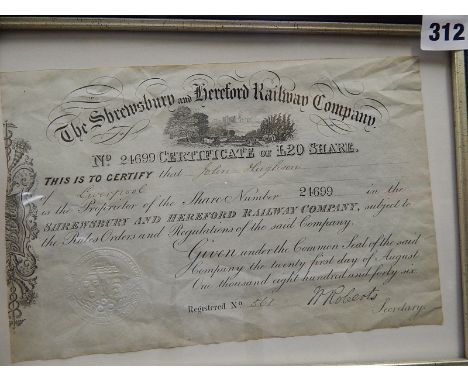 312
The Shrewsbury and Hereford Railway Company
No 24699 CERTIFICATE OF £20 SHARE.
THIS IS TO CERTIFY that John
of Liverpool
is the Proprietor of the Share Number 24699 in the
SHREWSBURY AND HEREFORD RAILWAY COMPANY, subject to
the Rules Orders and Regulations of the said Company.
Given under the Common Seal of the said
Company the twenty first day of August
One thousand eight hundred and forty six.
Registered No 561
W Roberts
Secretary.